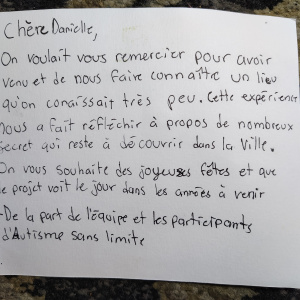 Chère Danielle,
On voulait vous remercier pour avoir
venu et de nous faire connaître un lieu
qu'on conaissait très peu. Cette expérience
nous a fait réfléchir à propos de nombreux
secret qui reste à découvrir dans la ville.
On vous souhaite des joyeuses fêtes et que
le projet voit le jour dans les années à venir
-De la part de l'équipe et les participants
d'Autisme sans limite